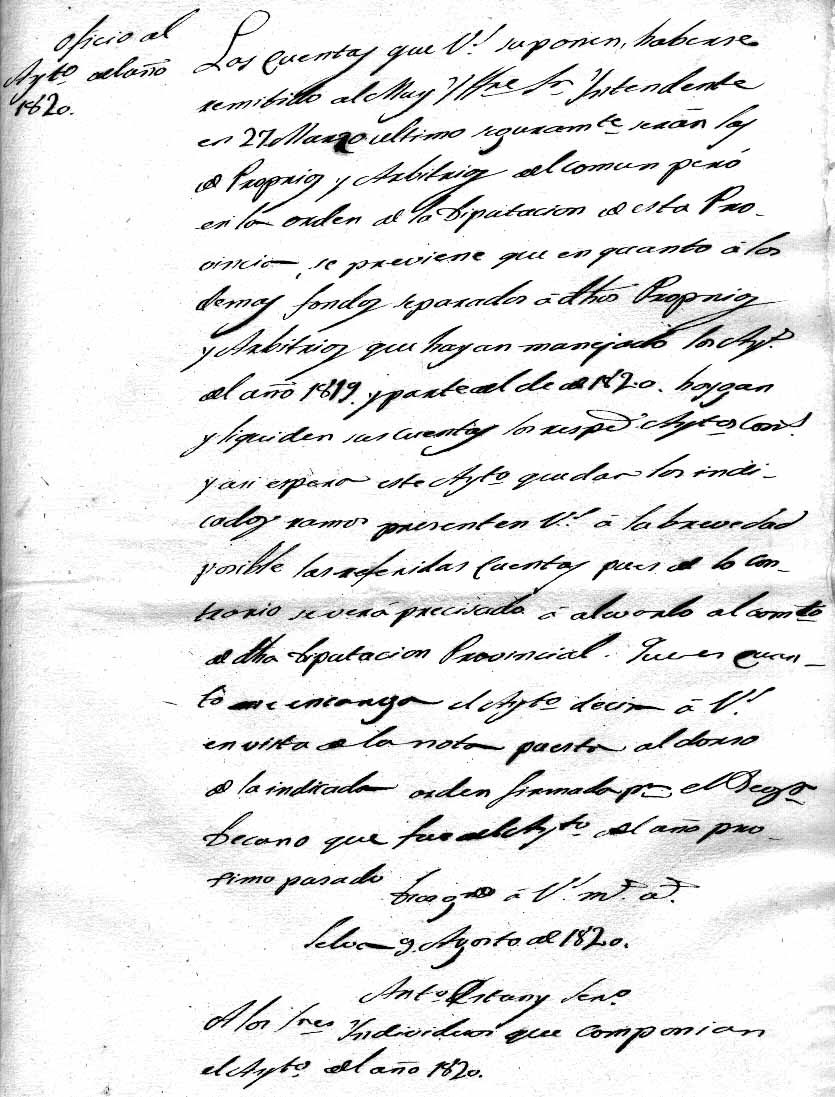 Oficio al
Aytº. del año
1820.
Las Cuentas que V.s suponen, haberse
remitido al Muy Iltre Sr. Intendente
en 27 Marzo ultimo seguramte. serán las
de Proprios y Arbitrios del comun peró
en la orden de la Diputacion de esta Pro-
vincia, se previene que en quanto á los
demas fondos separados á dhos Proprios
y Arbitrios que hayan manejado los Ayt.
del año 1819. y parte del de de 1820. haygan
y liquiden sus cuentas los resped. Aytos Cons.
y asi espera este Aytº que dar los indi-
cados ramos presenten V.s á la brevedad
posible las referidas Cuentas pues de lo con-
trario se verá precisado á al
de dha Diputacion Provincial. Que es quan-
to me encarga el Aytº decir á V.s
en vista de la nota puesta al dorso
de la indicada orden firmada pr. el Regor
Decano que fue del Aytº. del año pro-
simo pasado
Dios gue á V.s m.s a.s
Selva 9 Agosto de 1820.
Antº Estany Senº
A los Sres Individuos que componian
el Aytº. del año 1820.